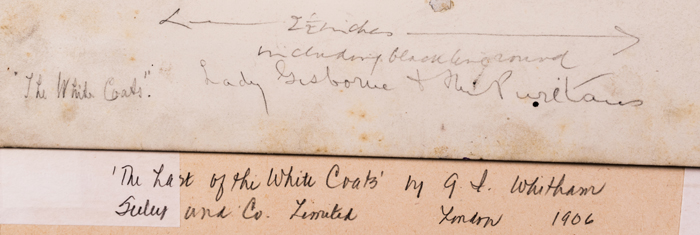 ← 7½ inches →
including black background
"The White Coats". Lady Gisborne & the Puritans
'The Last of the White Coats' by G I. Whitham
Seeley and Co. Limited London 1906